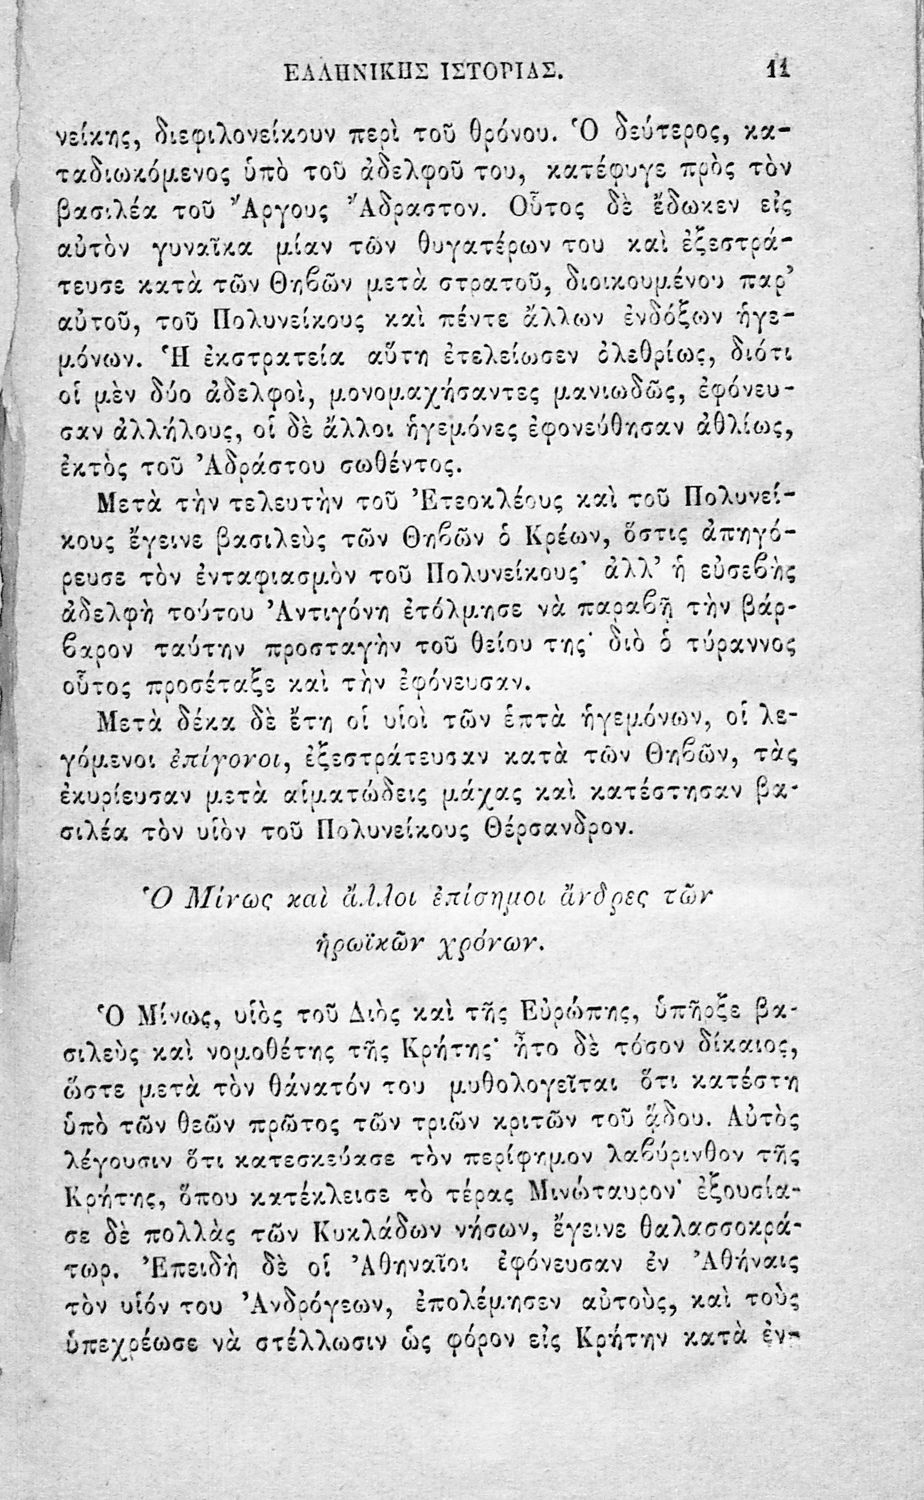 ΕΛΛΗΝΙΚΗΣ ΙΣΤΟΡΙΑΣ. 11
νείκης, διεφιλονείκουν περὶ τοῦ θρόνου. Ὁ δεύτερος, κα-
ταδιωκόμενος ὑπὸ τοῦ ἀδελφοῦ του, κατέφυγε πρὸς τὸν
βασιλέα τοῦ Ἄργους Ἄδραστον. Οὗτος δὲ ἔδωκεν εἰς
αὐτὸν γυναῖκα μίαν τῶν θυγατέρων του καὶ ἐξεστρά-
τευσε κατὰ τῶν Θηβῶν μετὰ στρατοῦ, διοικουμένου παρ'
αὐτοῦ, τοῦ Πολυνείκους καὶ πέντε ἄλλων ἐνδόξων ἡγε-
μόνων. Ἡ ἐκστρατεία αὕτη ἐτελείωσεν ὀλεθρίως, διότι
οἱ μὲν δύο ἀδελφοὶ, μονομαχήσαντες μανιωδῶς, ἐφόνευ-
σαν ἀλλήλους, οἱ δὲ ἄλλοι ἡγεμόνες ἐφονεύθησαν ἀθλίως,
ἐκτὸς τοῦ Ἀδράστου σωθέντος.
Μετὰ τὴν τελευτὴν τοῦ Ἐτεοκλέους καὶ τοῦ Πολυνεί-
κους ἔγεινε βασιλεὺς τῶν Θηβῶν ὁ Κρέων, ὅστις ἀπηγό-
ρευσε τὸν ἐνταφιασμὸν τοῦ Πολυνείκους· ἀλλ' ἡ εὐσεβὴς
ἀδελφὴ τούτου Ἀντιγόνη ἐτόλμησε νὰ παραβῇ τὴν βάρ-
βαρον ταύτην προσταγὴν τοῦ θείου της· διὸ ὁ τύραννος
οὗτος προσέταξε καὶ τὴν ἐφόνευσαν.
Μετὰ δέκα δὲ ἔτη οἱ υἱοὶ τῶν ἑπτὰ ἡγεμόνων, οἱ λε-
γόμενοι ἐπίγονοι, ἐξεστράτευσαν κατὰ τῶν Θηβῶν, τὰς
ἐκυρίευσαν μετὰ αἱματώδεις μάχας καὶ κατέστησαν βα-
σιλέα τὸν υἱὸν τοῦ Πολυνείκους Θέρσανδρον.
Ὁ Μίνως καὶ ἄλλοι ἐπίσημοι ἄνδρες τῶν
ἡρωϊκῶν χρόνων.
Ὁ Μίνως, υἱὸς τοῦ Διὸς καὶ τῆς Εὐρώπης, ὑπῆρξε βα-
σιλεὺς καὶ νομοθέτης τῆς Κρήτης· ἦτο δὲ τόσον δίκαιος,
ὥστε μετὰ τὸν θάνατόν του μυθολογεῖται ὅτι κατέστη
ὑπὸ τῶν θεῶν πρῶτος τῶν τριῶν κριτῶν τοῦ ᾅδου. Αὐτὸς
λέγουσιν ὅτι κατεσκεύασε τὸν περίφημον λαβύρινθον τῆς
Κρήτης, ὅπου κατέκλεισε τὸ τέρας Μινώταυρον· ἐξουσία-
σε δὲ πολλὰς τῶν Κυκλάδων νήσων, ἔγεινε θαλασσοκρά-
τωρ. Ἐπειδὴ δὲ οἱ Ἀθηναῖοι ἐφόνευσαν ἐν Ἀθήναις
τὸν υἱόν του Ἀνδρόγεων, ἐπολέμησεν αὐτοὺς, καὶ τοὺς
ὑπεχρέωσε νὰ στέλλωσιν ὡς φόρον εἰς Κρήτην κατὰ ἐν-